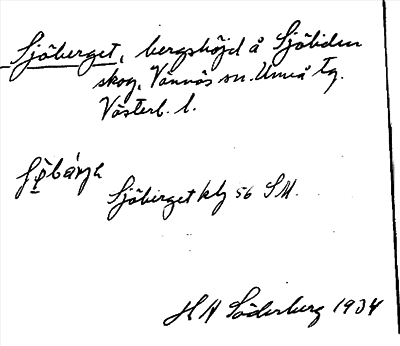 Sjöberget, bergshöjd å Sjöliden
skog, Vännäs sn. Umeå tg.
Västerb. l.
Sjöberget kbl 56 SM.
H N Söderberg 1934